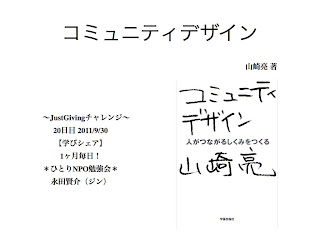 コミュニティデザイン
山崎亮 著
〜JustGivingチャレンジ〜
20日目 2011/9/30
【学びシェア】
1ヶ月毎日！
＊ひとりNPO勉強会＊
永田賢介（ジン）
コミュニティ
デザイン
人がつながるしくみをつくる
山崎亮
学芸出版社